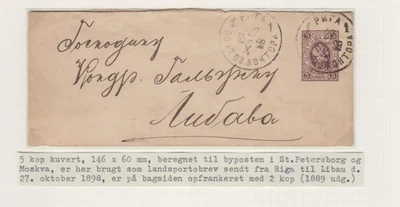 РИГА 1
ПОЧТ. КОНТОРА
РИГА 1
КОНТОРА
5
5
Господину
Кондр. Гальвину
Либава
5 kop kuvert, 146 x 60 mm, beregnet til byposten i St.Petersborg og
Moskva, er her brugt som landsportobrev sendt fra Riga til Libau d.
27. oktober 1898, er på bagsiden opfrankeret med 2 kop (1889 udg.)